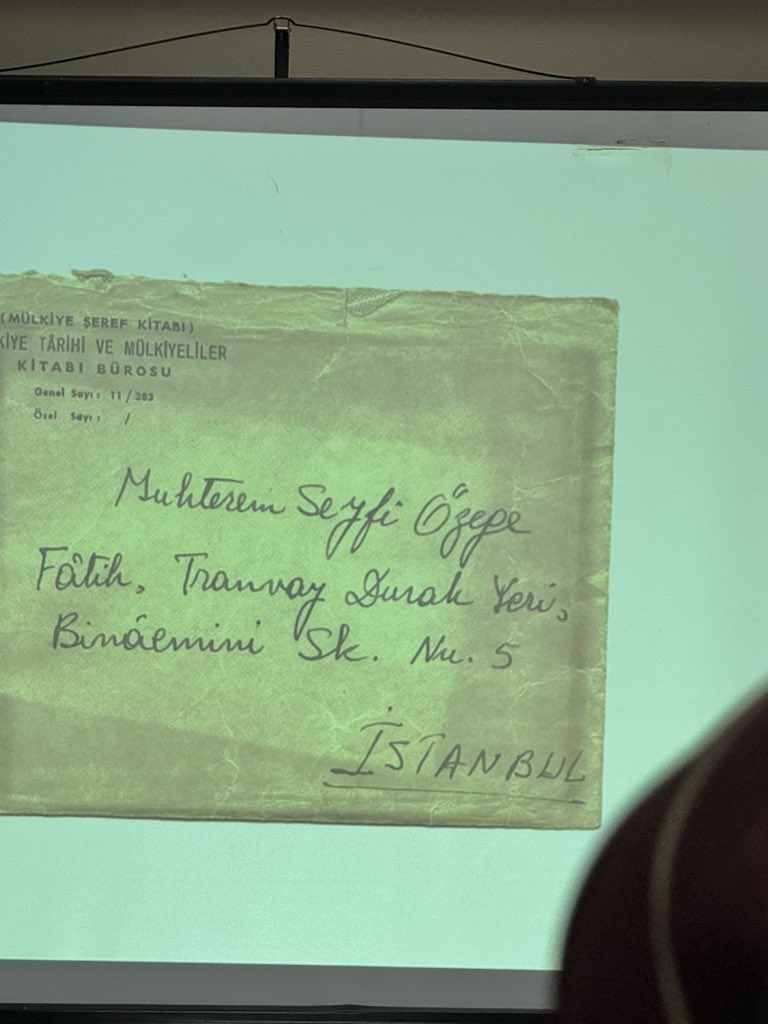 (MÜLKİYE ŞEREF KİTABI)
KİYE TÂRİHİ VE MÜLKİYELİLER
KİTABI BÜROSU
Genel Sayı: 11/383
Özel Sayı: /
Muhterem Seyfi Özege
Fâtih, Tranvay Durak Yeri,
Binâemini Sk. Nu. 5
İSTANBUL